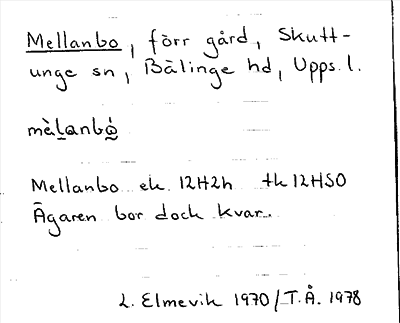 Mellanbo, förr gård, Skutt-
unge sn, Bälinge hd, Upps. l.
mèlanbó̠
Mellanbo ek. 12H2h tk 12HSO
Ägaren bor dock kvar.
L. Elmevik 1970/T.Å. 1978